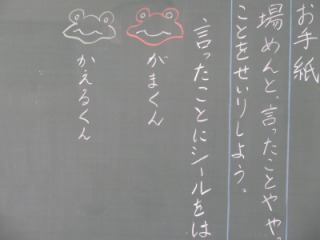 お手紙
場めんと、言ったことやや
ことをせいりしよう。
言ったことにシールをは
がまくん
かえるくん